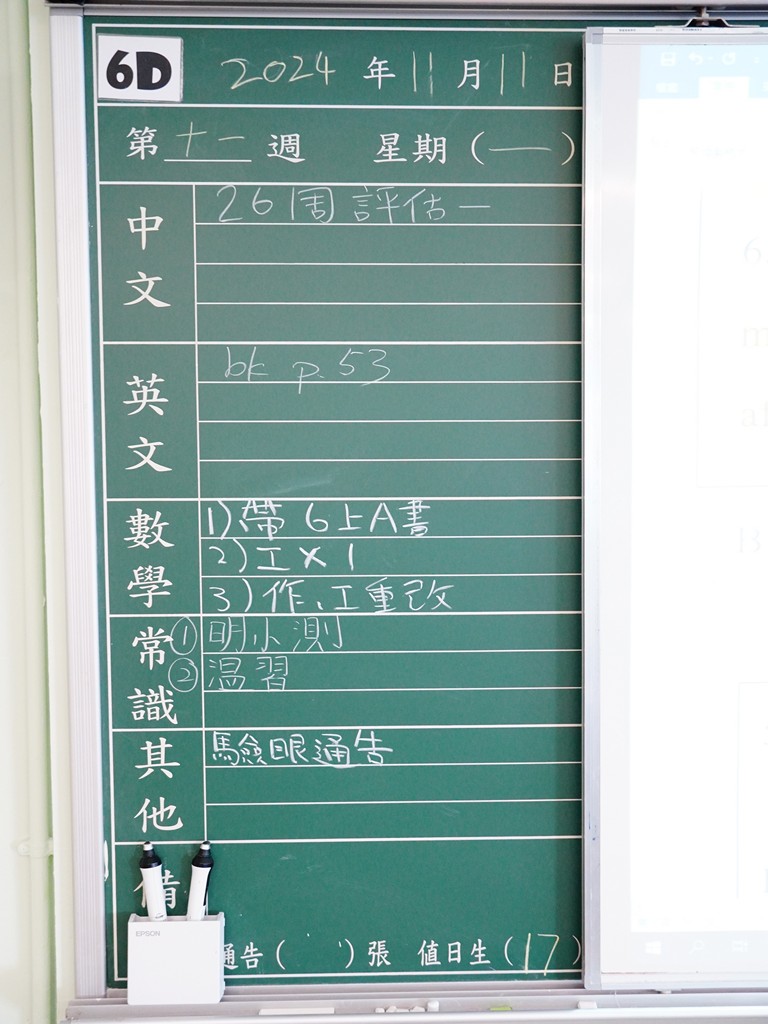 6D 2024年11月11日
第十一週 星期(一)
中文 26周評估一
英文 bk p.53
數學 1)帶6上A書
2)工X1
3)作、工重改
常識 ①明小測
②温習
其他 驗眼通告
備
EPSON
通告( )張 值日生(17)